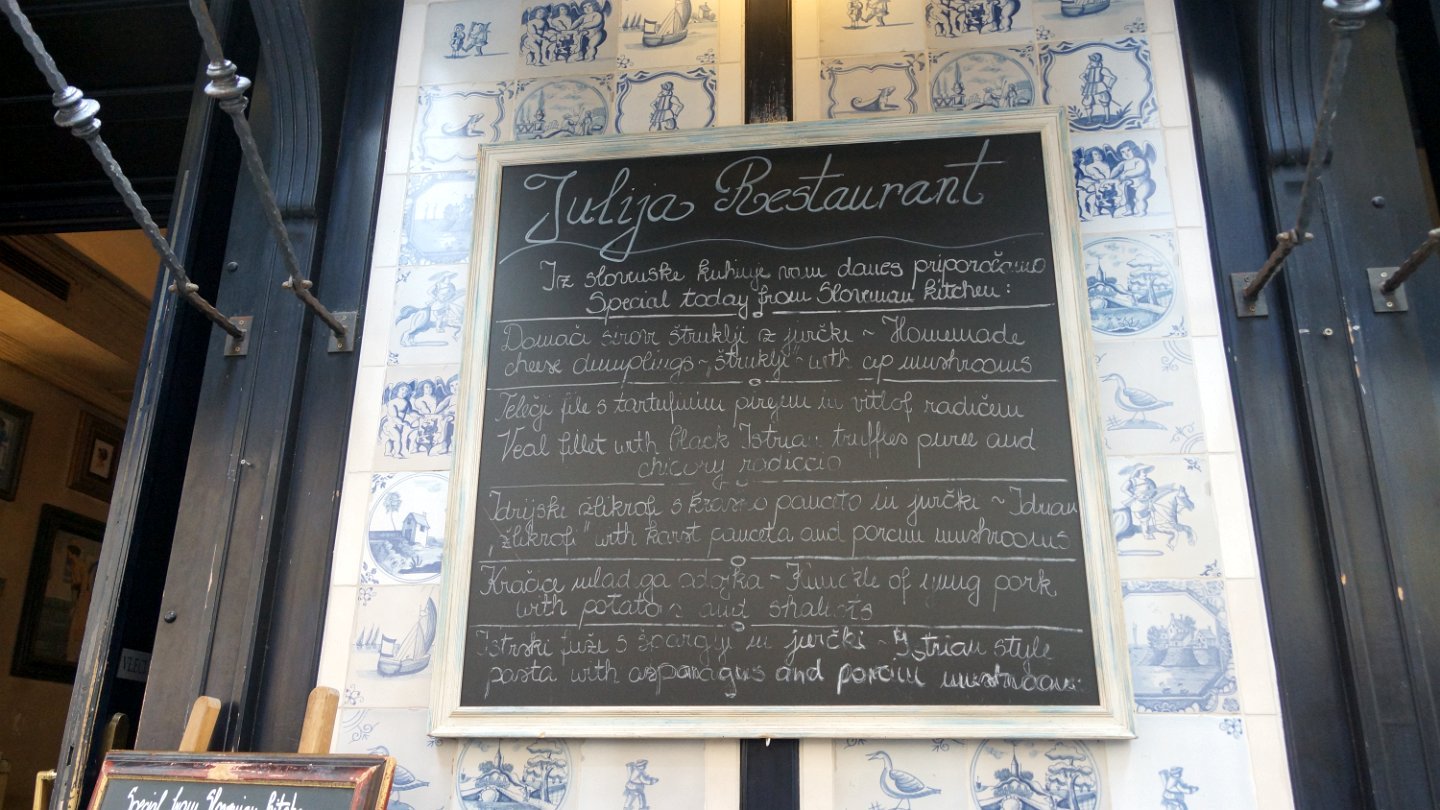 Julija Restaurant
Iz slovenske kuhinje vam danes priporočamo
Special today from Slovenian kitchen:
Domači sirovi štruklji z jurčki ~ Homemade
cheese dumplings - „štruklji" with cep mushrooms
Telečji file s tartufinim pirejem in vitlof radičem
Veal fillet with black Istrian truffles puree and
chicory radiccio
Idrijski žlikrofi s kraško panceto in jurčki ~ Idrian
„žlikrofi" with karst panceta and porcini mushrooms
Kračice mladega odojka - Knuckle of young pork
with potato and shallots
Istrski fuži s šparglji in jurčki ~ Istrian style
pasta with asparagus and porcini mushrooms
Special from Slovenian